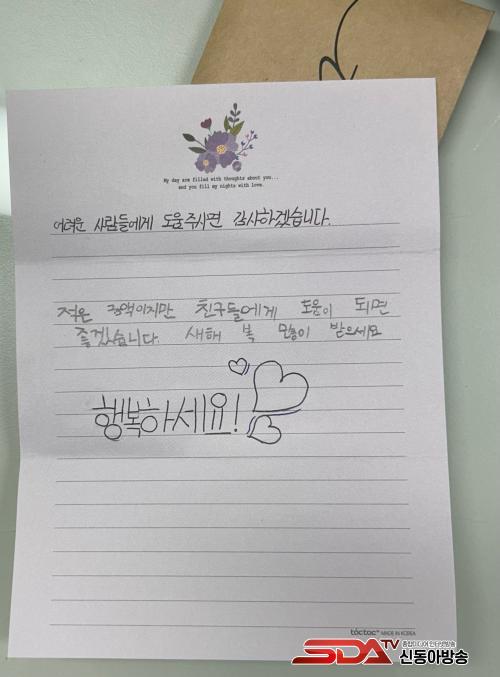 My day are filled with thoughts about you...
and you fill my nights with love.
어려운 사람들에게 도움주시면 감사하겠습니다.
적은 금액이지만 친구들에게 도움이 되면
좋겠습니다. 새해 복 많이 받으세요
행복하세요!
tóctoc MADE IN KOREA
SDATV 종합미디어 인터넷방송
신동아방송